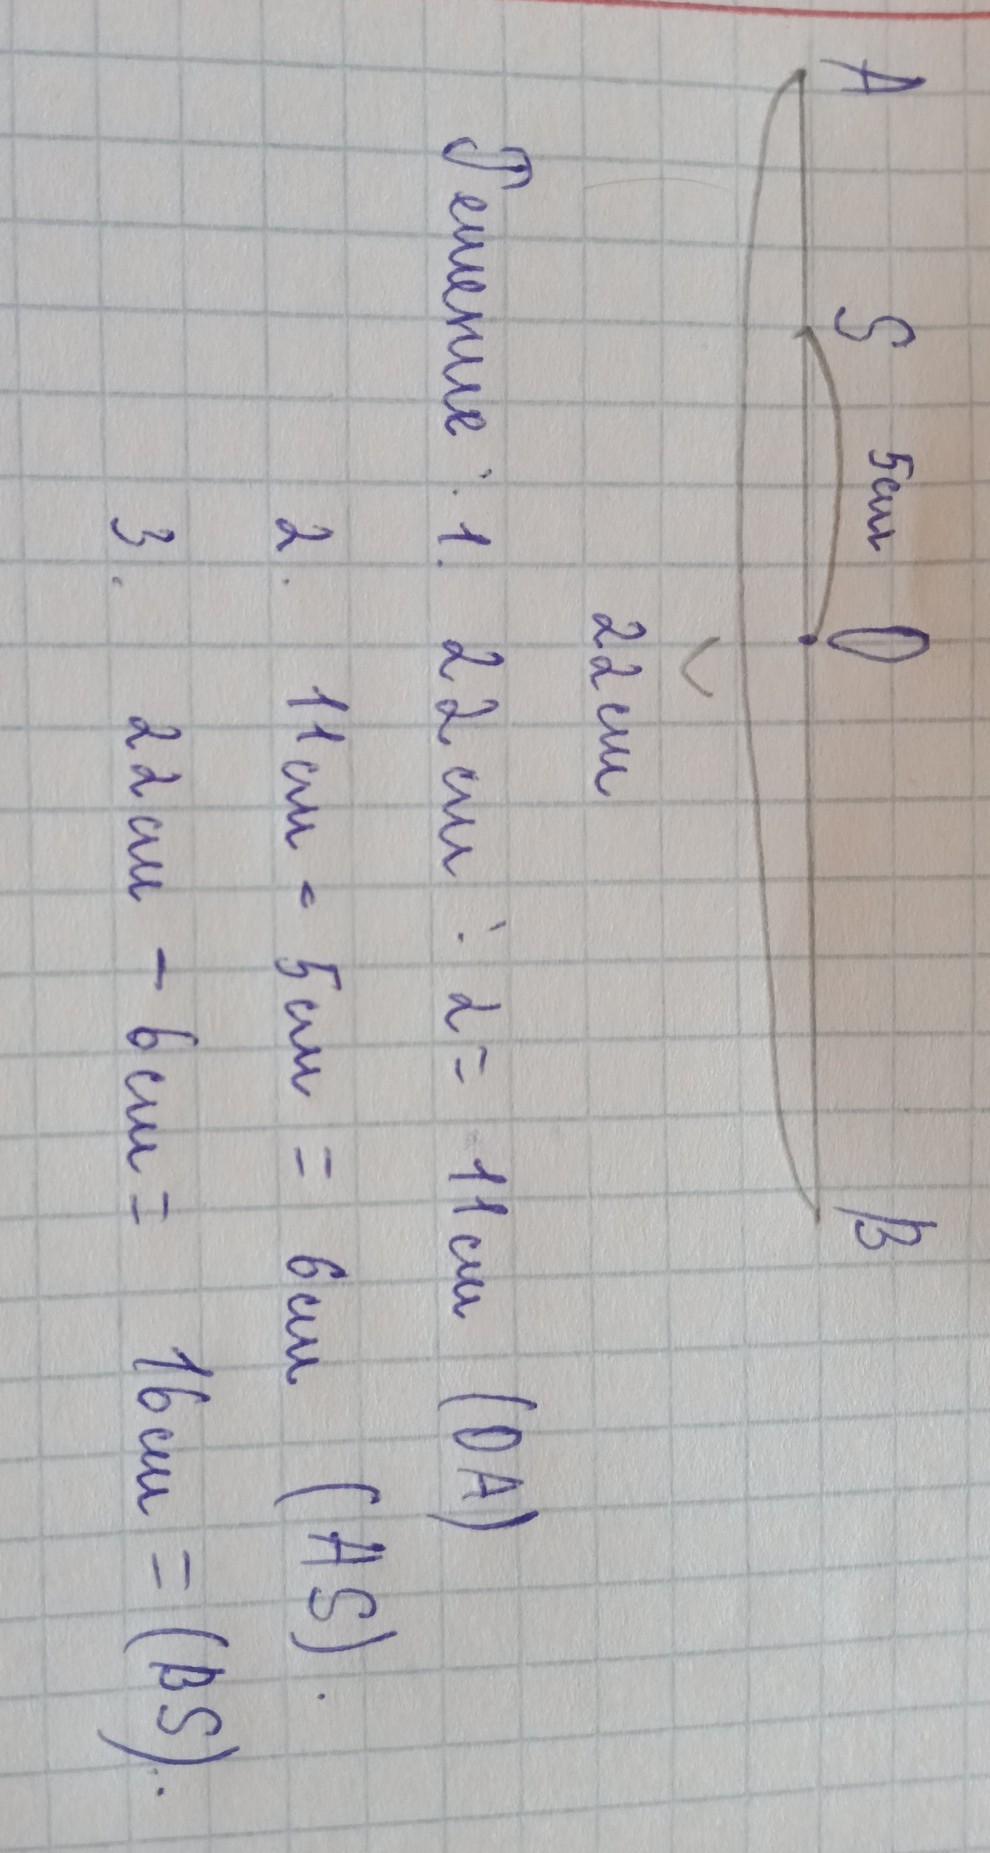 A S 5см O B
22см
Решение: 1. 22см : 2 = 11см (OA)
2. 11см - 5см = 6см (AS).
3. 22см - 6см = 16см = (BS).